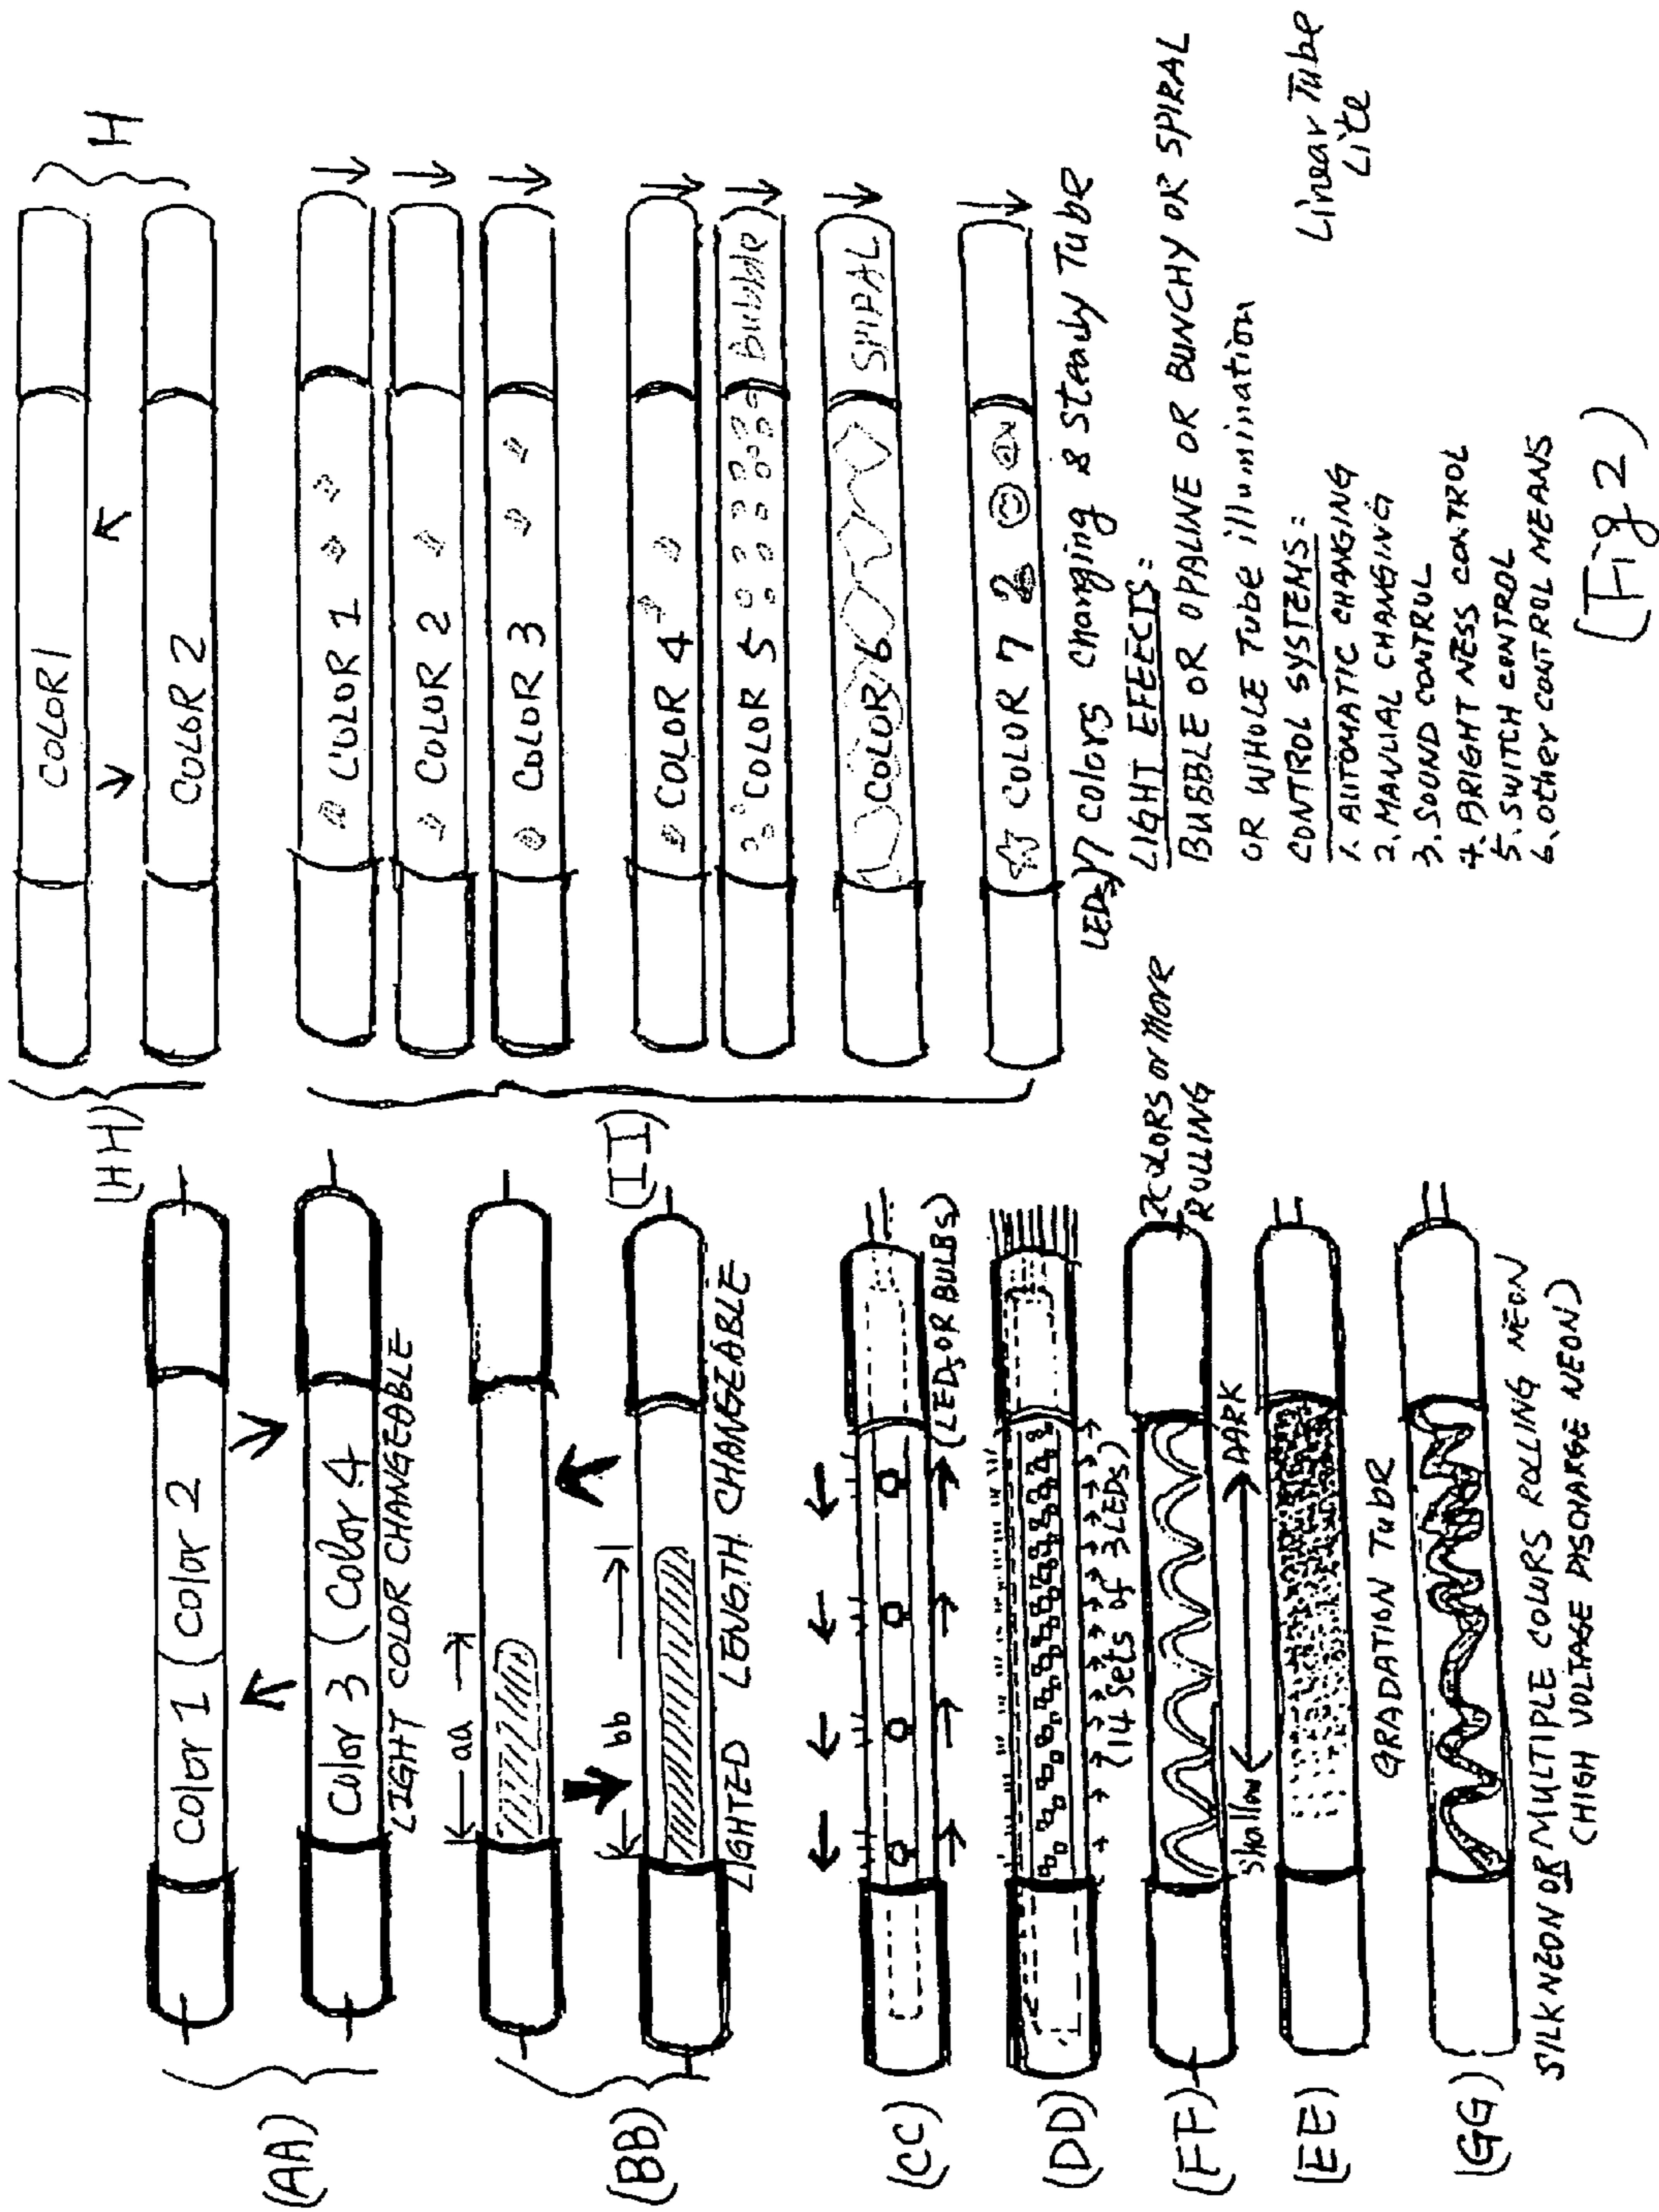 (AA)
Color 1 (Color 2
Color 3 (Color 4
LIGHT COLOR CHANGEABLE
(BB)
aa
bb
LIGHTED LENGTH CHANGEABLE
(CC)
(LEDs OR BULBS)
(DD)
(14 Sets of 3LEDs)
(FF)
2COLORS or More
ROLLING
Shallow
DARK
(EE)
GRADATION TUBE
(GG)
SILK NEON OR MULTIPLE COLORS ROLLING NEON
(HIGH VOLTAGE DISCHARGE NEON)
(HH)
COLOR 1
COLOR 2
H
(II)
COLOR 1
COLOR 2
COLOR 3
COLOR 4
COLOR 5 Bubble
COLOR 6 SPIRAL
COLOR 7
LEDs 7 Colors Changing & Steady Tube
LIGHT EFFECTS:
BUBBLE OR OPALINE OR BUNCHY OR SPIRAL
OR WHOLE TUBE illumination
CONTROL SYSTEMS:
1. AUTOMATIC CHANGING
2. MANUAL CHANGING
3. SOUND CONTROL
4. BRIGHT NESS CONTROL
5. SWITCH CONTROL
6. Other CONTROL MEANS
Linear Tube
Lite
(Fig 2)